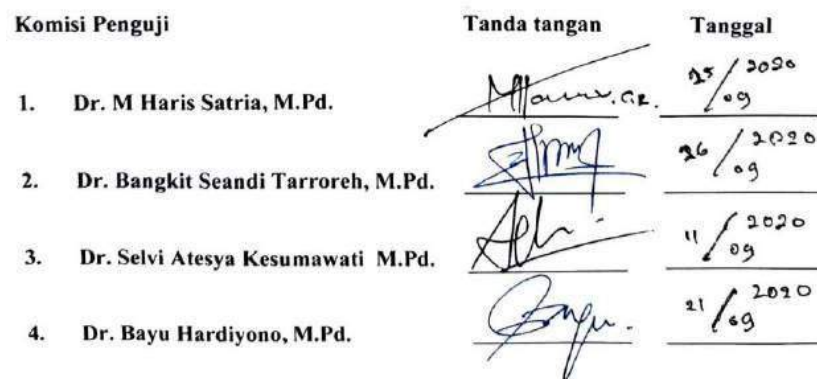 Komisi Penguji Tanda tangan Tanggal
1. Dr. M Haris Satria, M.Pd. 25/09 2020
2. Dr. Bangkit Seandi Tarroreh, M.Pd. 26/09 2020
3. Dr. Selvi Atesya Kesumawati M.Pd. 11/09 2020
4. Dr. Bayu Hardiyono, M.Pd. 21/09 2020